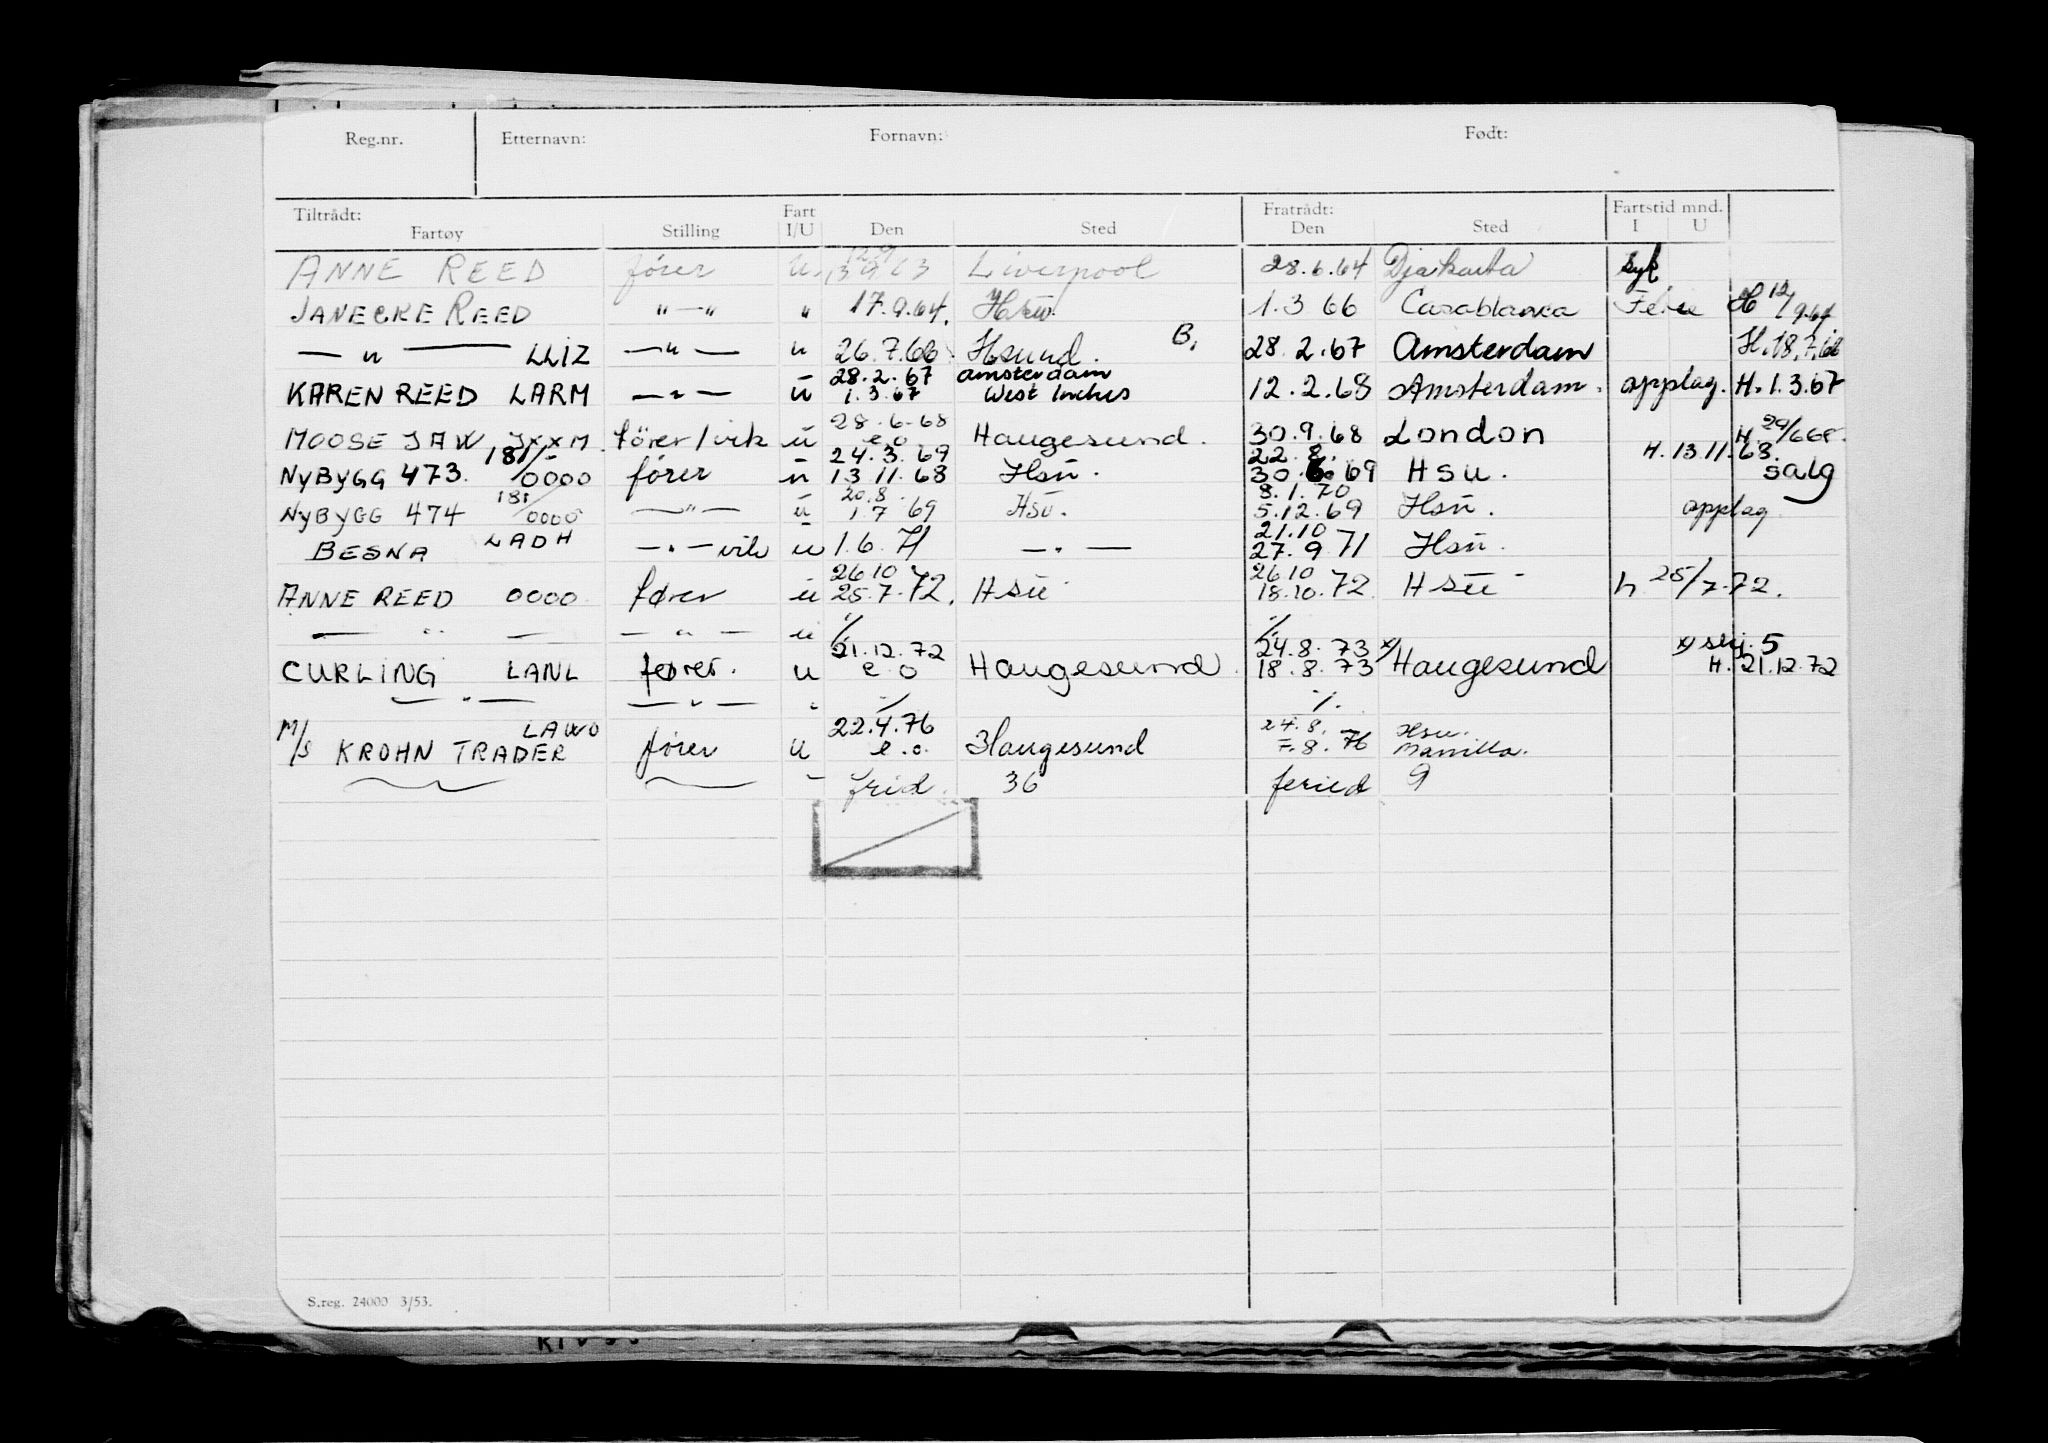 Reg.nr. Etternavn: Fornavn: Født:
Tiltrådt: Fartøy Stilling Fart I/U Den Sted Fratrådt: Den Sted Fartstid mnd. I U
ANNE REED fører u. Liverpool 28.6.64 Djakarta syk
JANECKE REED "—" " 17.9.64. Hsu. 1.3 66 Casablanca Ferie H 12/9.64
— " — LLIZ —"— u 26.7.66. Hsund. B, 28.2.67 Amsterdam H.18.7.66
28.2.67 Amsterdam
KAREN REED LARM —"— u 1.3.67 West Inches 12.2.68 Amsterdam. opplag. H. 1.3.67
28.6.68
MOOSE JAW JXXM. fører/vik u e.o. Haugesund. 30.9.68 London H. 29/6 68.
181/- 24.3.69 22.8. H. 13.11.68.
NYBYGG 473. 0000 fører u 13 11.68 Hsu. 30.6.69 HSU. salg
181/ 20.8. 8.1.70
NYBYGG 474 0000 —"— u 1.7 69 Hsu. 5.12.69 Hsu. opplag
LADH 21.10
BESNA —"—vik u 1.6.71 —"— 27.9.71 Hsu.
26 10 26 10
ANNE REED 0000 fører u 25.7.72. HSU 18.10.72. HSU h 25/7.72.
— " — — " — u ./. ./.
21.12.72 24.8.73 x) x) skj. 5
CURLING LANL fører. u e.o Haugesund. 18.8.73 Haugesund H. 21.12.72
— " — — " — " ./. ./.
LAWO 22.4.76 24.8. — Hsu.
M/S KROHN TRADER fører u e.o. Haugesund 7.8.76 Manilla.
frid. 36 feried 9
S.reg. 24000 3/53.